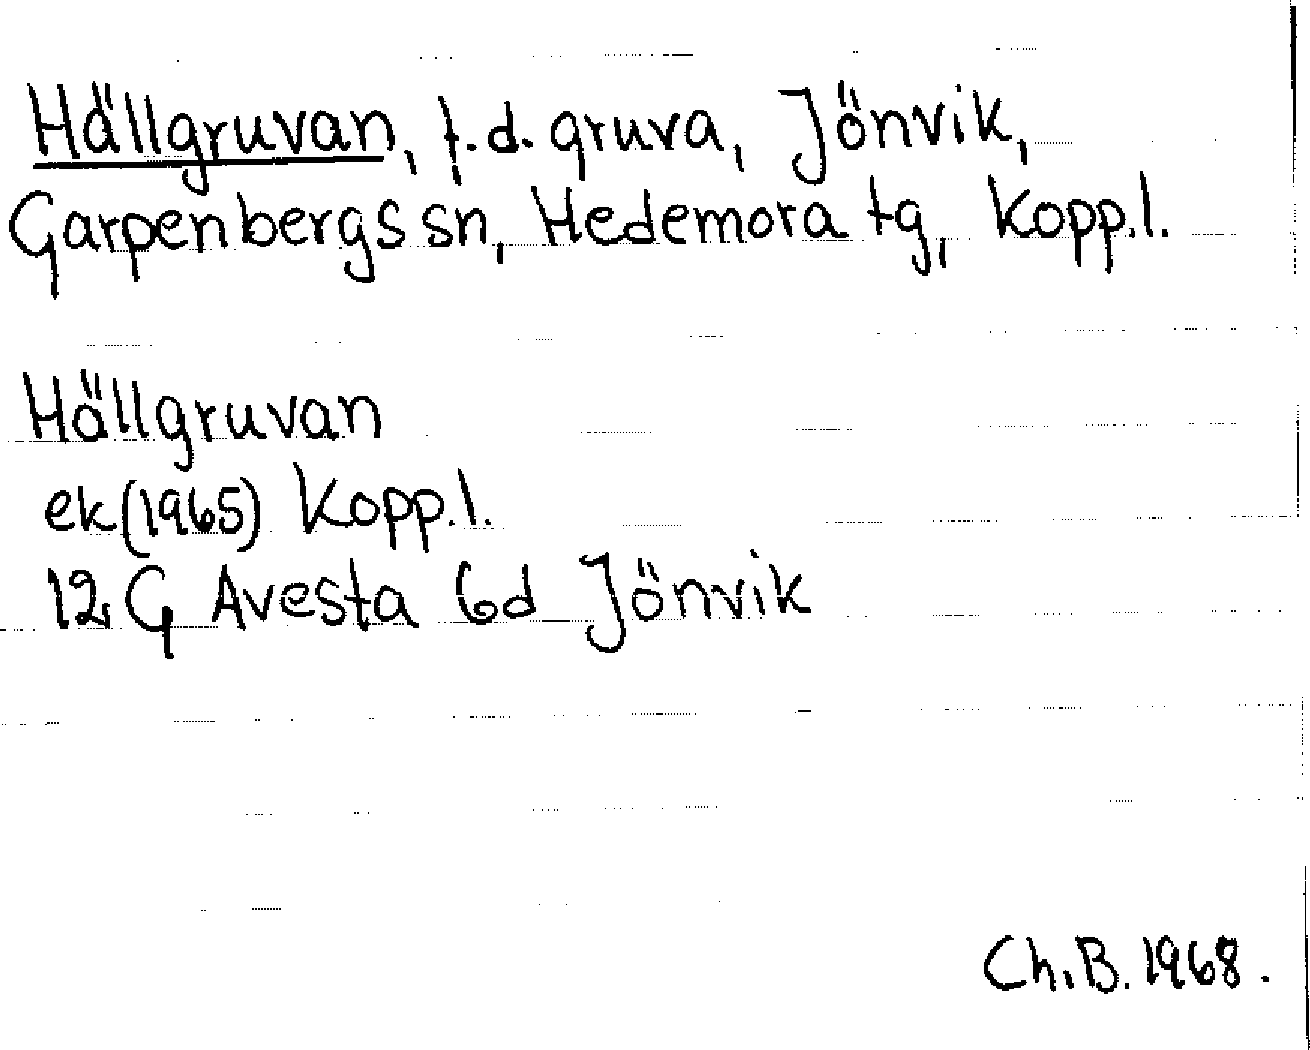 Hällgruvan, f.d. gruva, Jönvik,
Garpenbergs sn, Hedemora tg, Kopp.l.
Hällgruvan
ek (1965) Kopp.l.
12 G Avesta 6d Jönvik
Ch.B. 1968.